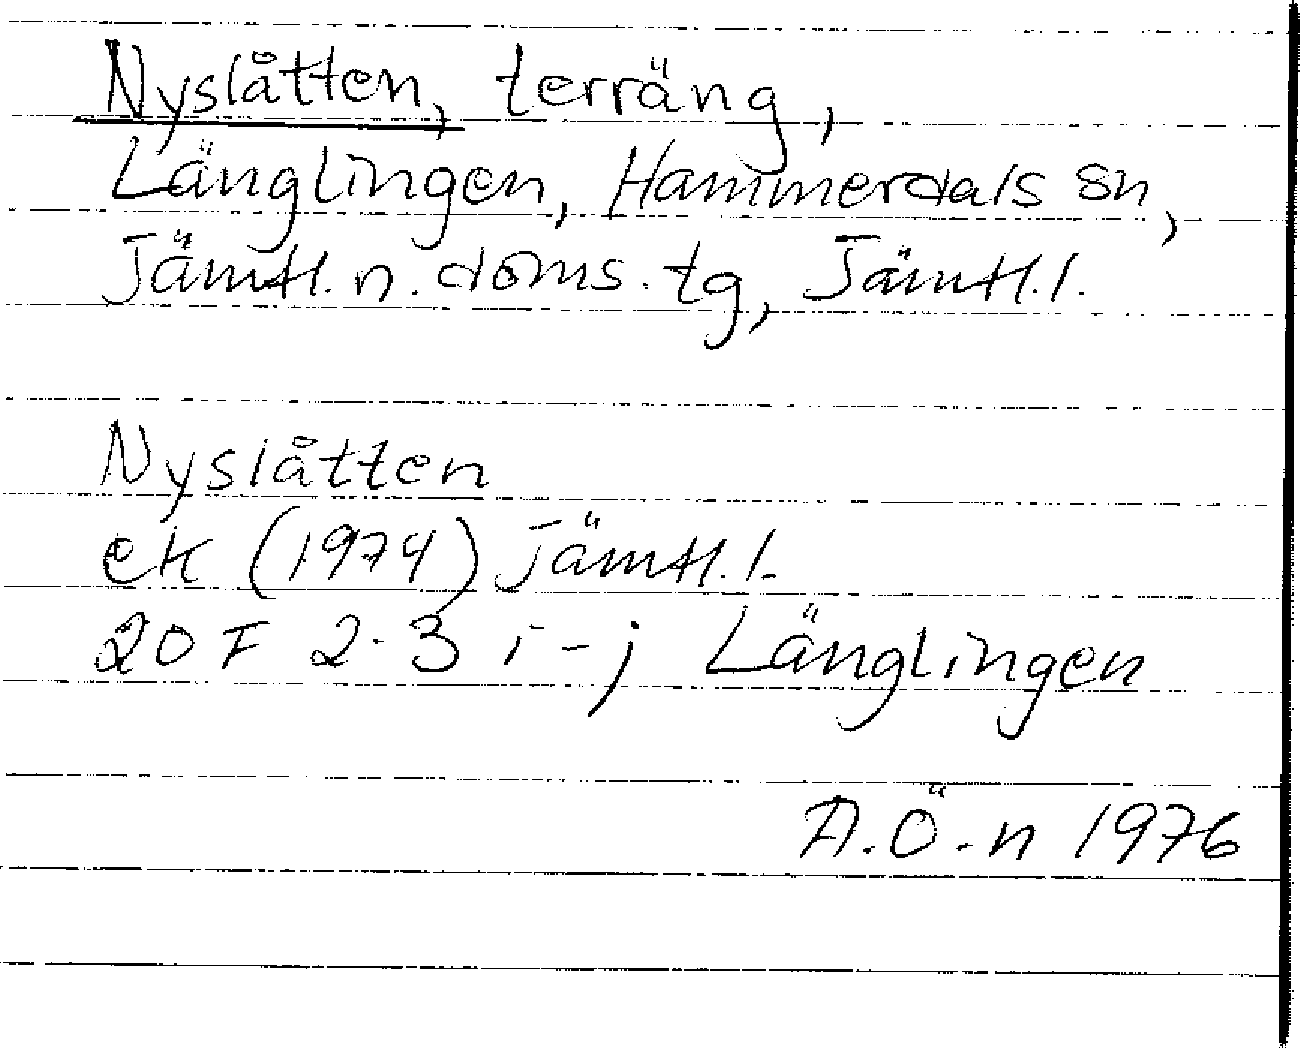 Nyslåtten, terräng,
Länglingen, Hammerdals sn,
Jämtl. n. doms. tg, Jämtl. l.
Nyslåtten
ek (1974) Jämtl. l.
20 F 2-3 i-j Länglingen
A.Ö-n 1976